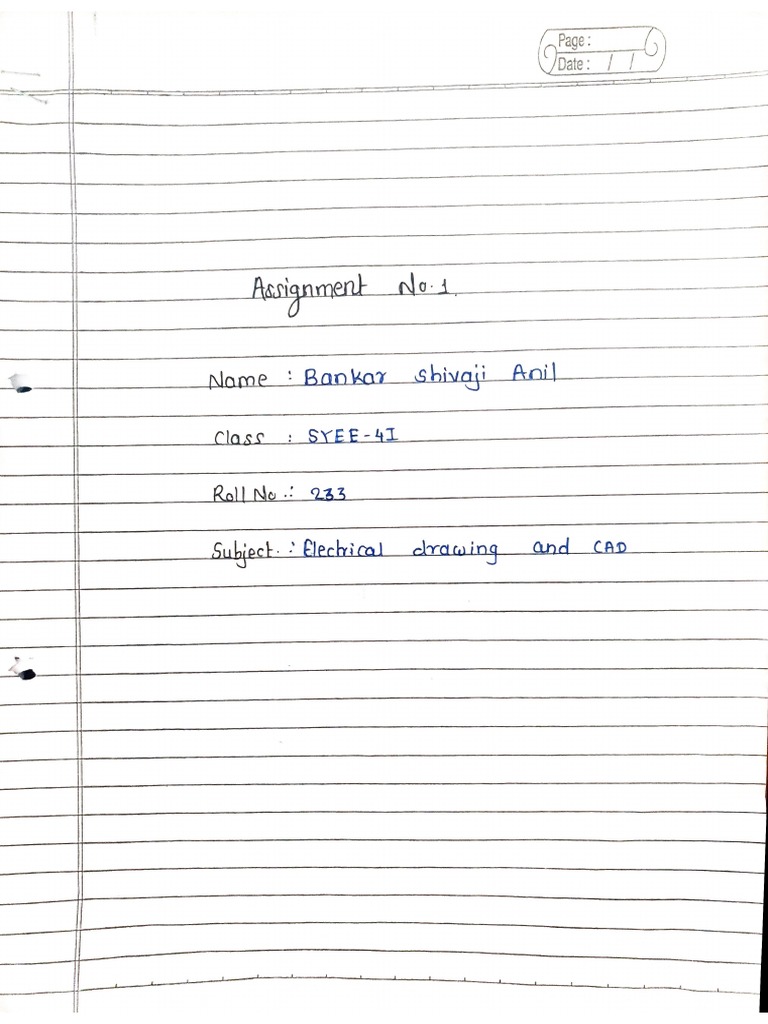 Page :
Date : / /
Assignment No. 1.
Name : Bankar Shivaji Anil
Class : SYEE-4I
Roll No .: 233
Subject. : Electrical drawing and CAD